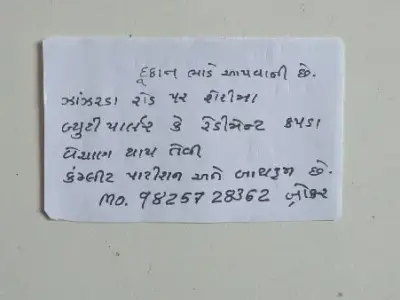 દુકાન ભાડે આપવાની છે.
ઝાંઝરડા રોડ પર શેરીમા
બ્યુટી પાર્લર કે રેડીમેન્ટ કપડા
વેચાણ થાય તેવી
કંમ્લીટ પાર્ટીશન અને બાથરૂમ છે.
MO. 98257 28362 બ્રોકર